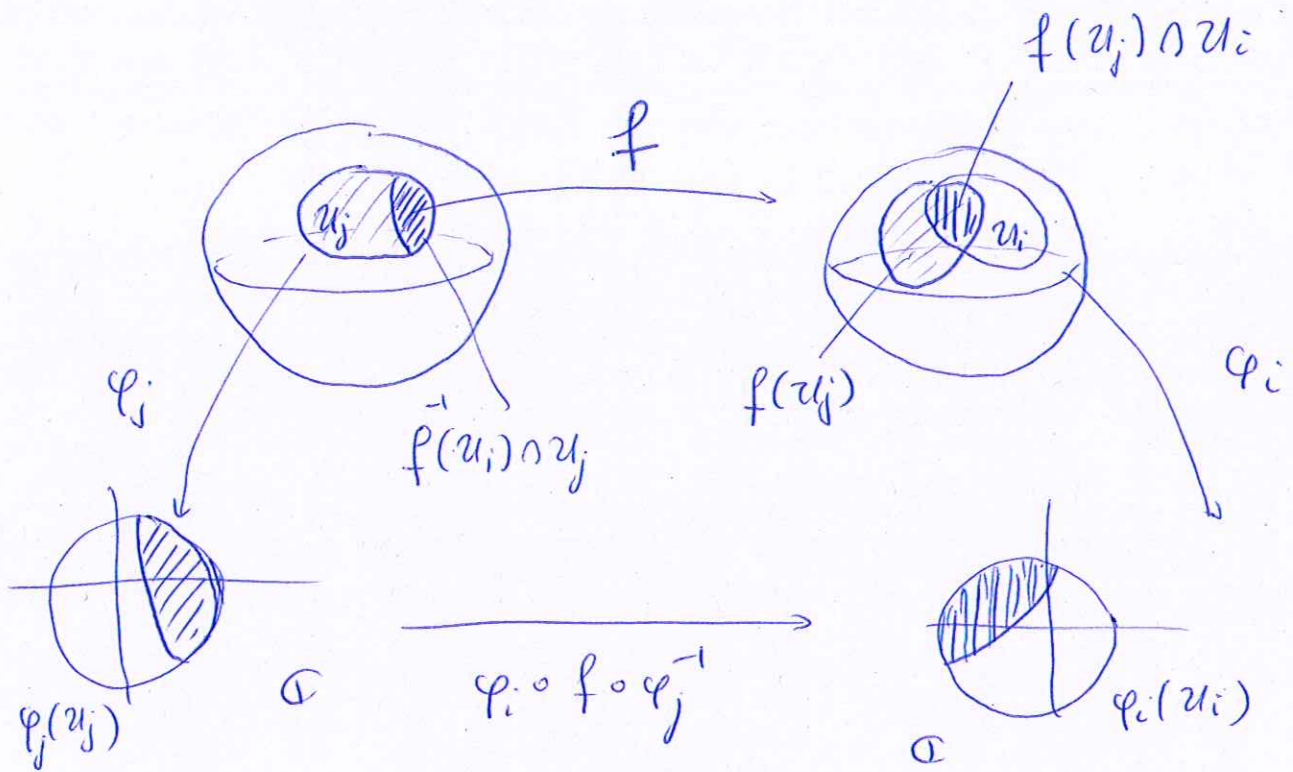 f(U_j) ∩ U_i
f
U_j
U_i
φ_j
f^{-1}(U_i) ∩ U_j
f(U_j)
φ_i
φ_j(U_j)
ℂ
φ_i ∘ f ∘ φ_j^{-1}
φ_i(U_i)
ℂ